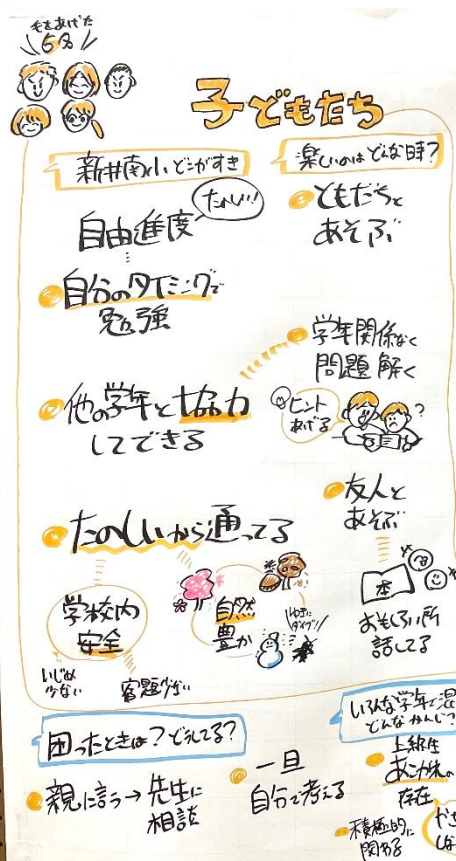 手をあげた
5名
子どもたち
新井南小どこがすき
たのしい!
自由進度
自分のタイミングで
勉強
他の学年と協力
してできる
たのしいから通ってる
学校内
安全
いじめ
少ない
宿題少ない
自然
豊か
ゆきに
ダイブ!
楽しいのはどんな時?
ともだちと
あそぶ
学年関係なく
問題解く
ヒント
あげる
?
友人と
あそぶ
本
おもしろい所
話してる
困ったときは?どうしてる?
親に言う→先生に
相談
一旦
自分で考える
いろんな学年で混
どんなかんじ?
上級生
あこがれの
存在
積極的に
関わる